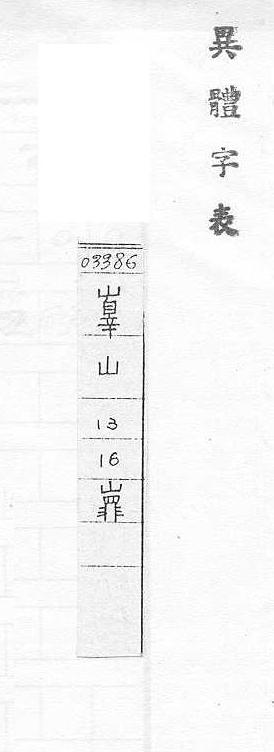 異體字表
03386
山
13
16